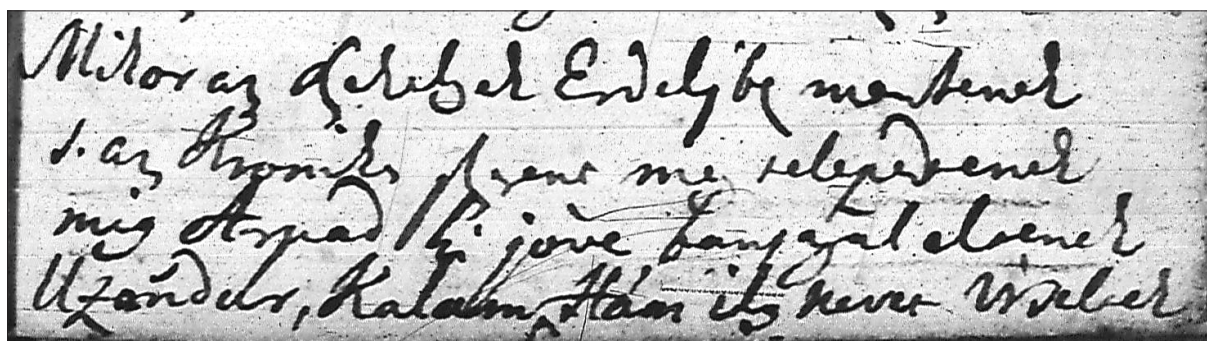 Mikor az Szekelyek Erdelybe mentenek
s. az Kronika szerent meg telepedtenek
mig Arpad ki jöve bannyal eltenek
Uzondur, Kaladun, Háár illy nevet viseltek